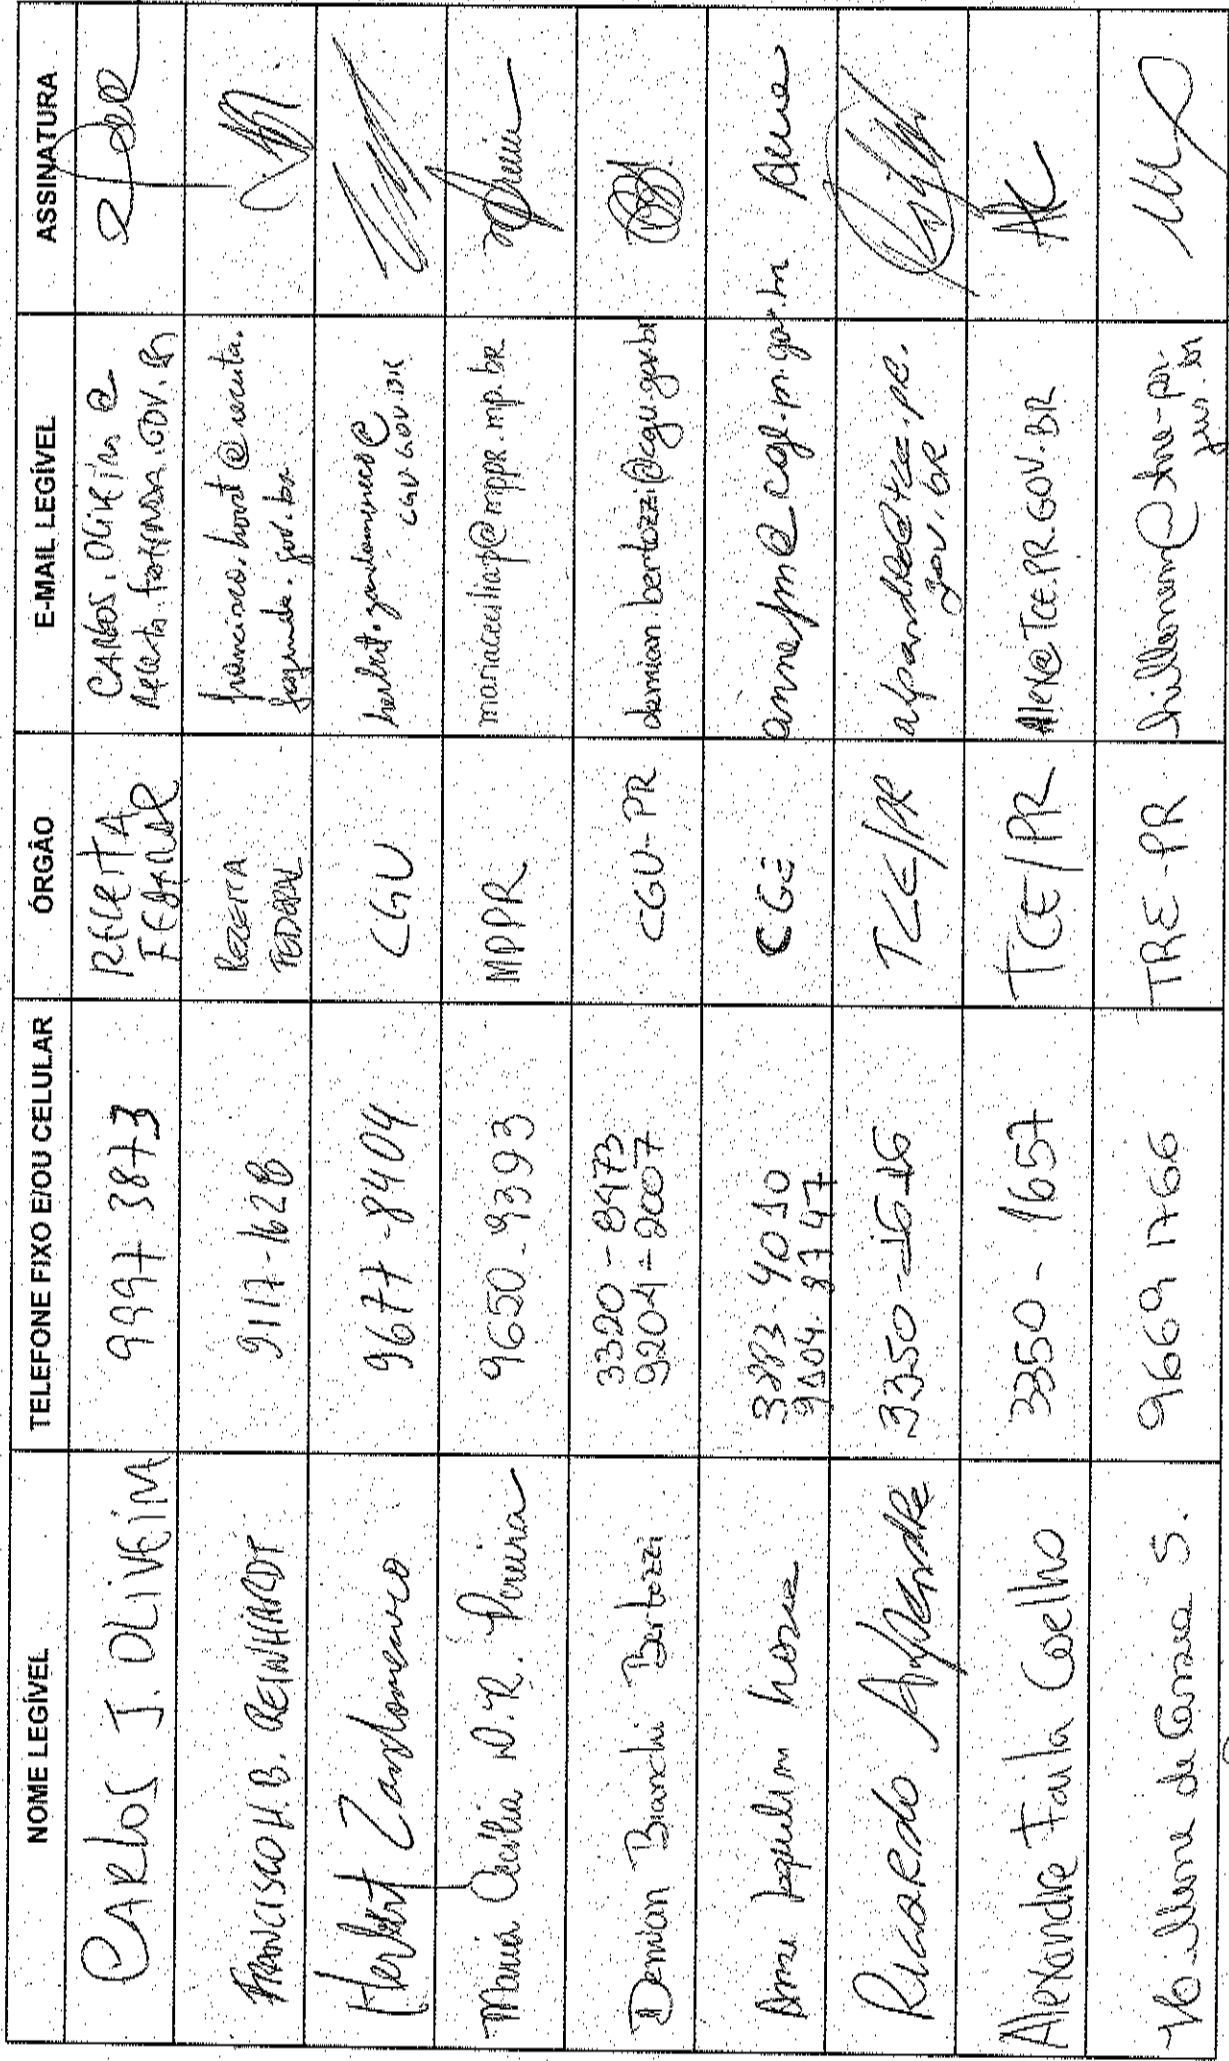 NOME LEGÍVEL TELEFONE FIXO E/OU CELULAR ÓRGÃO E-MAIL LEGÍVEL ASSINATURA
CARLOS J. OLIVEIRA 9997 3873 RECEITA
FEDERAL CARLOS.OLIVEIRA@
receita.fazenda.GOV.BR
FRANCISCO H.B. REINHARDT 9117-1628 RECEITA
FEDERAL @receita.
fazenda.gov.br
Herbert Zandomenico 9677-8404 CGU herbert.zandomenico@
CGU.GOV.BR
Maria Cecilia D.R. Pereira 9650-9393 MPPR mariaceciliap@mppr.mp.br
Demian Bianchi Bertozzi 3320-8473
9204-2007 CGU-PR demian.bertozzi@cgu.gov.br
Anne 3883-4010
8747 CGE
Ricardo Alpendre 3350-1616 TCE/PR alpendre@tce.pr.
gov.br
Alexandre Faila Coelho 3350-1657 TCE/PR Alex@TCE.PR.GOV.BR
de S. 9669 1766 TRE-PR @tre-pr.
jus.br